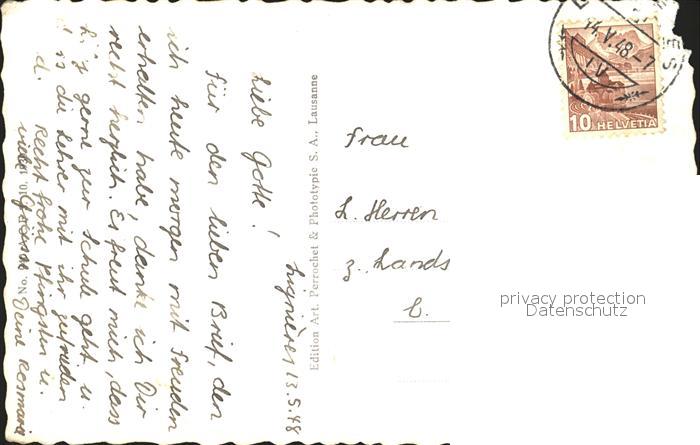 Lignières 13.5.48
Liebe Gotte!
Für den lieben Brief, den
ich heute morgen mit Freuden
erhalten habe, danke ich Dir
recht herzlich. Es freut mich, dass
gerne zur Schule geht u.
die Lehrer mit ihr zufrieden
Recht frohe Pfingsten u.
viele Grüsse Deine Rosmarie
Edition Art. Perrochet & Phototypie S. A., Lausanne
Frau
H. Herren
z. Lands
14.V.48-7
10 HELVETIA
privacy protection
Datenschutz